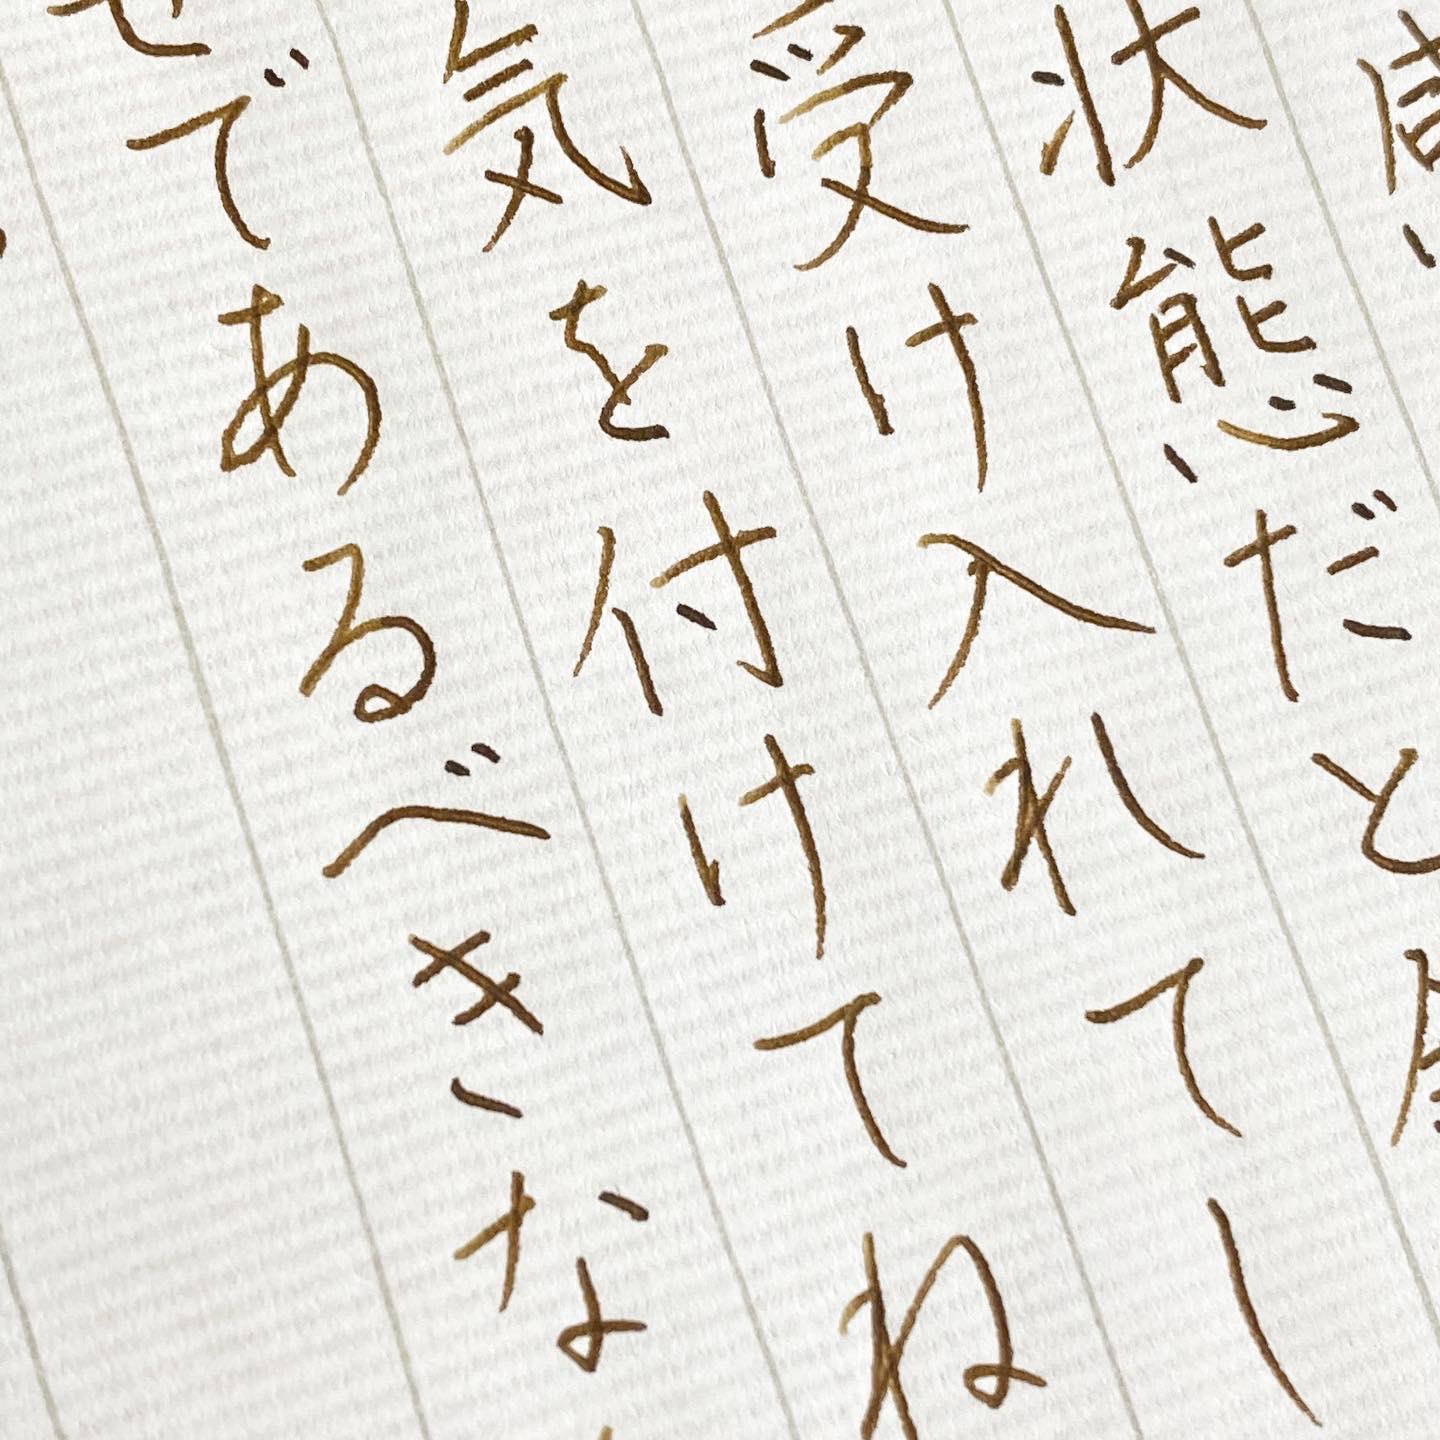 状態だと
受け入れてし
気を付けてね
であるべきな